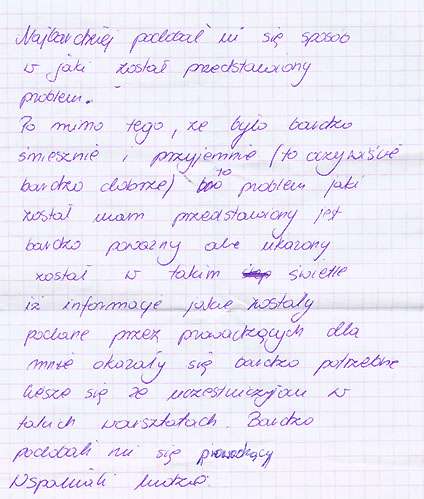 Najbardziej podobał mi się sposób
w jaki został przedstawiony
problem.
Po mimo tego, że było bardzo
śmiesznie i przyjemnie (to oczywiście
bardzo dobrze) to problem jaki
został nam przedstawiony jest
bardzo poważny ale ukazany
został w takim świetle
iż informacje jakie zostały
podane przez prowadzących dla
mnie okazały się bardzo potrzebne
Ciesze się że uczestniczyłam w
takich warsztatach. Bardzo
podobali mi się prowadzący
Wspaniali ludzie.